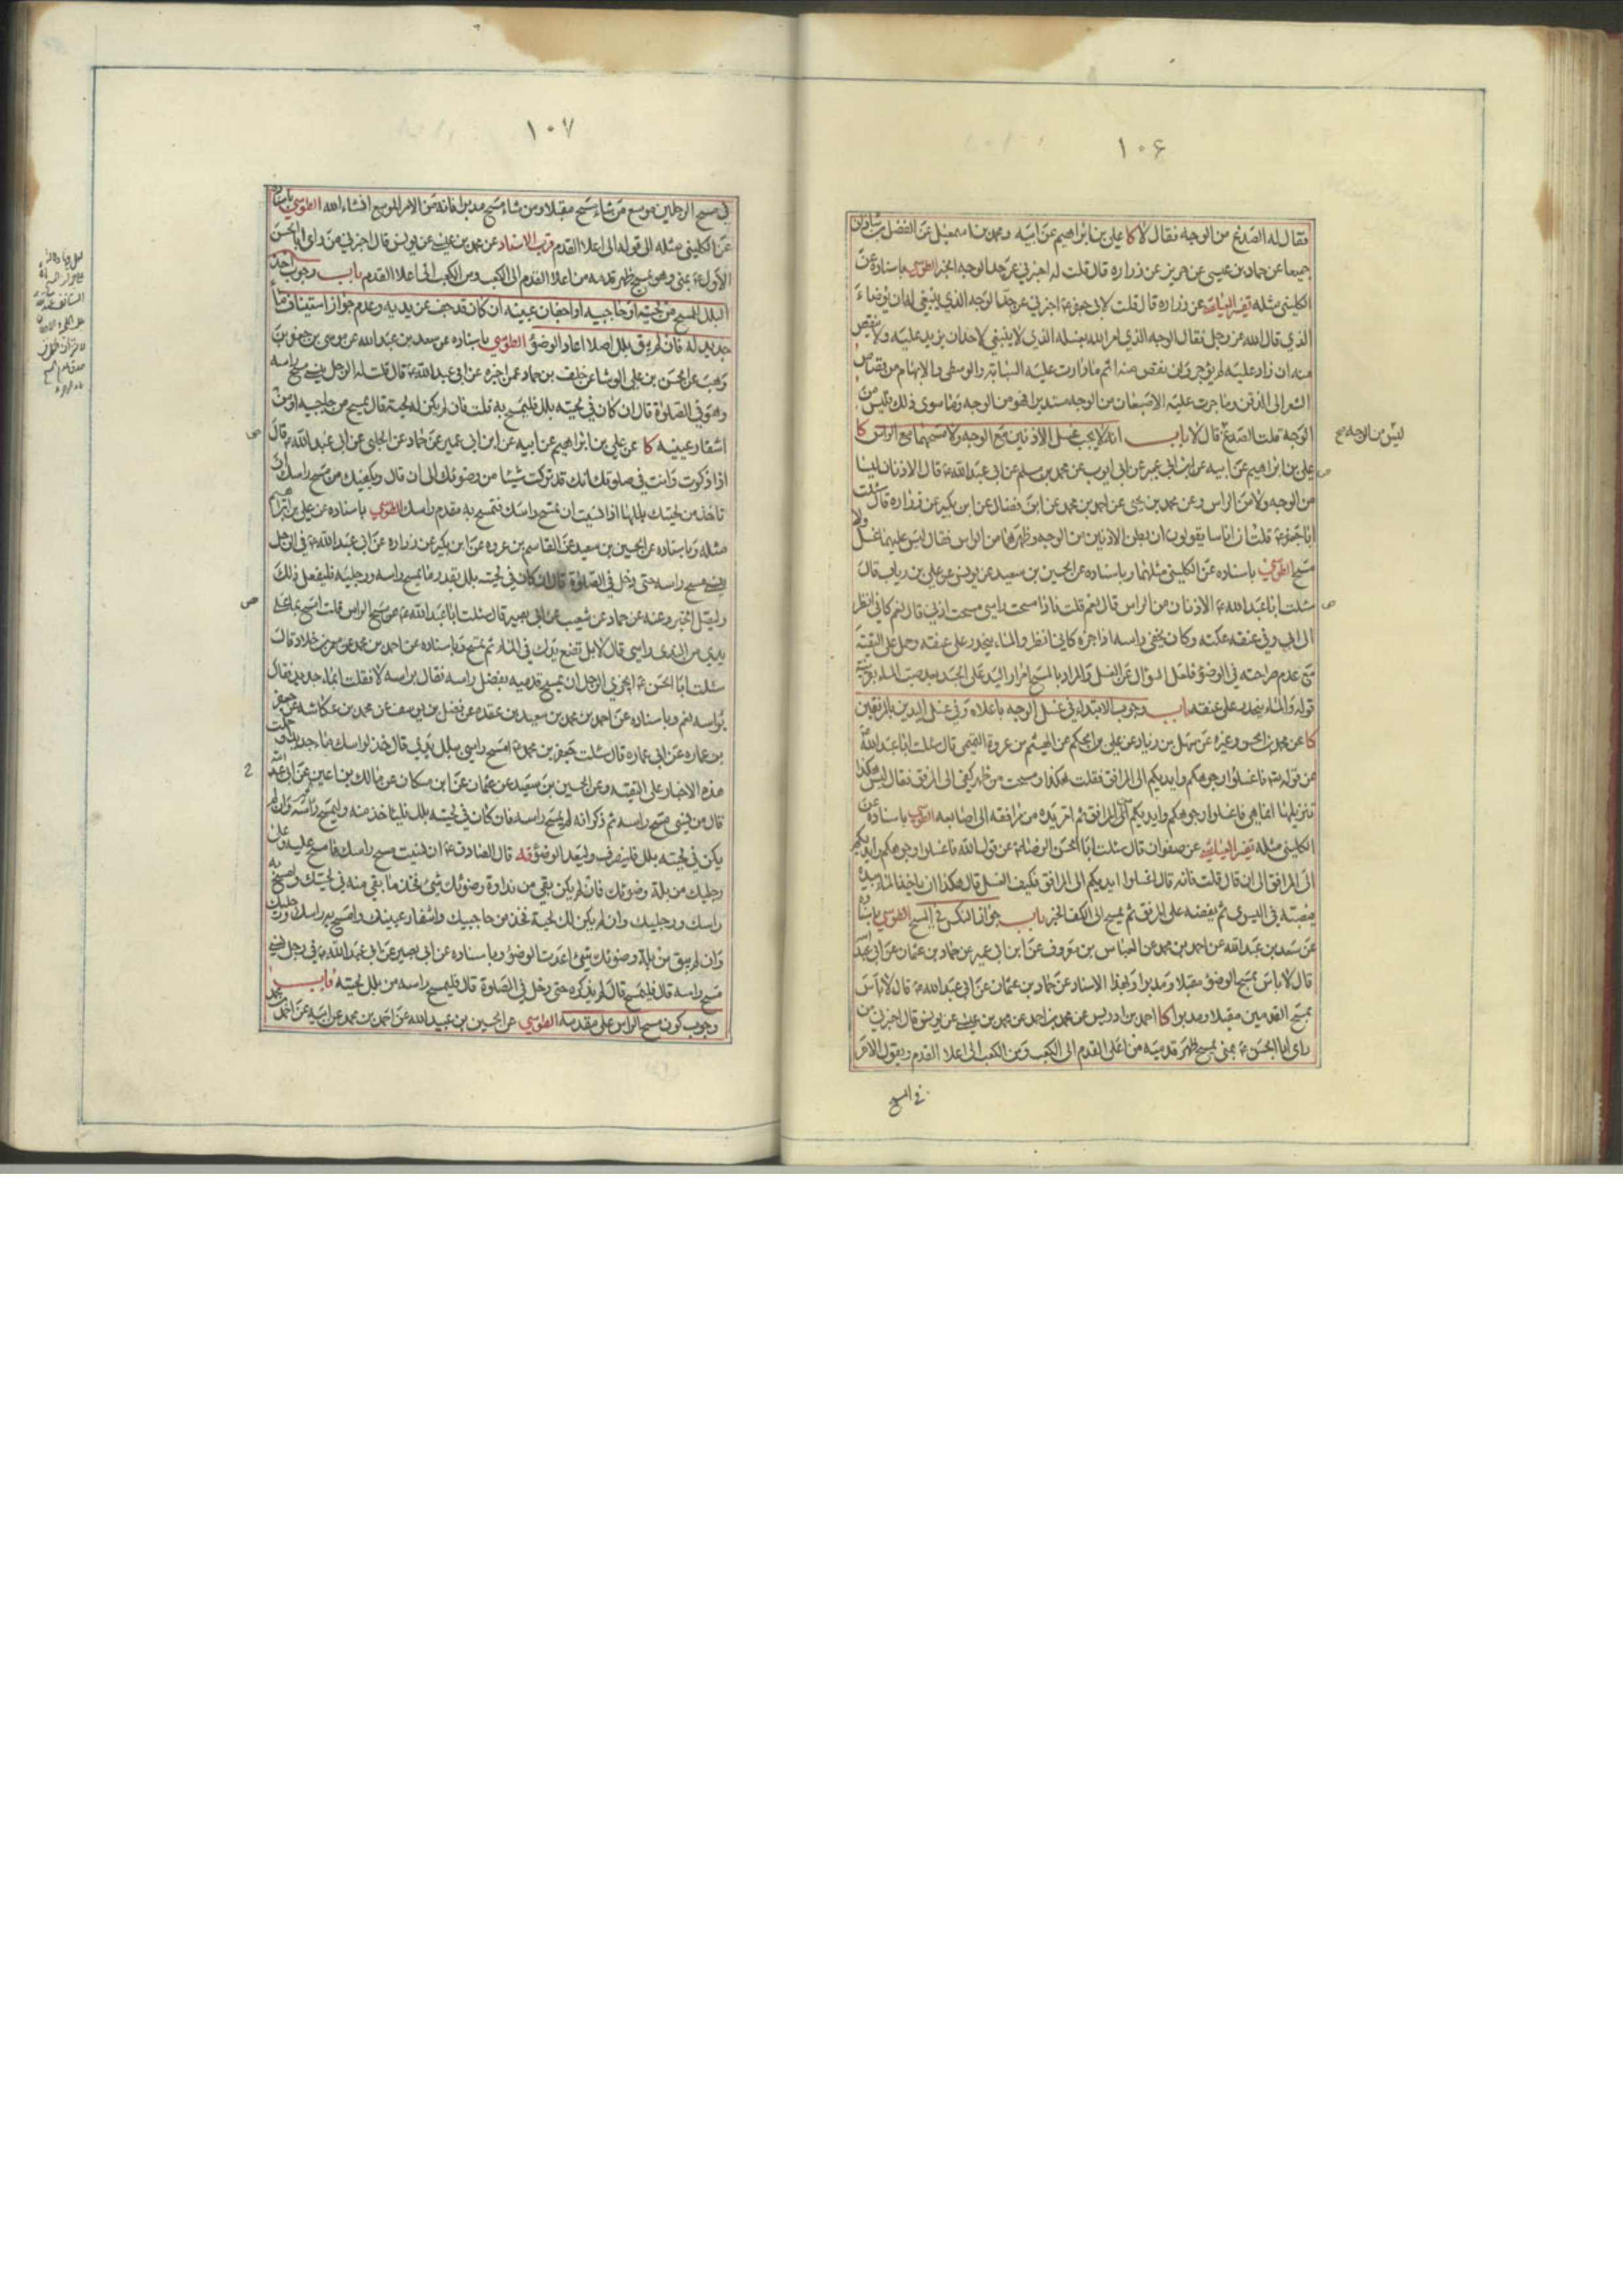 ١٠۶
فقال له الصدغ من الوجه فقال لا كا علي بن ابراهيم عن ابيه ومحمد بن اسمعيل عن الفضل بن شاذان
جميعا عن حماد بن عيسى عن حريز عن زراره قال قلت له اخبرني عن حد الوجه الخبر الطوسي باسناده عن
الكليني مثله تفسير العياشي عن زراره قال قلت لابي جعفر ع اخبرني عن حد الوجه الذي ينبغي له ان يوضاء
الذي قال الله عز وجل فقال الوجه الذي امر الله بغسله الذي لا ينبغي لاحد ان يزيد عليه ولا ينقص
منه ان زاد عليه لم يوجر وان نقص منه اثم ما دارت عليه السبابة والوسطى والابهام من قصاص
الشعر الى الذقن وما جرت عليه الاصبعان من الوجه مستديرا فهو من الوجه وما سوى ذلك فليس من
الوجه قلت الصدغ قال لا باب انه لا يجب غسل الاذنين مع الوجه ولا مسحهما مع الراس كا
ليس من الوجه
علي بن ابراهيم عن ابيه عن ابن ابي عمير عن ابي ايوب عن محمد بن مسلم عن ابي عبد الله ع قال الاذنان ليسا
من الوجه ولا من الراس وعن محمد بن يحيى عن احمد بن محمد عن ابن فضال عن ابن بكير عن زراره قال سئلت
ابا جعفر ع قلت ان اناسا يقولون ان بطن الاذنين من الوجه وظهرهما من الراس فقال ليس عليهما غسل ولا
مسح الطوسي باسناده عن الكليني مثلهما وباسناده عن الحسين بن سعيد عن يونس عن علي بن رياب قال
سئلت ابا عبد الله ع الاذنان من الراس قال نعم قلت فاذا مسحت راسي مسحت اذني قال نعم كاني انظر
الى ابي وفي عنقه عكنة وكان يحفي راسه اذا جزه كاني انظر والماء ينحدر على عنقه وحمل على التقية
مع عدم صراحته في الوضوء فلعل السؤال عن الغسل والمراد بالمسح امرار اليد على الجسد بعد صب الماء بقرينة
قوله والماء ينحدر على عنقه باب وجوب الابتداء في غسل الوجه باعلاه وفي غسل اليدين بالمرفقين
كا عن محمد بن الحسن وغيره عن سهل بن زياد عن علي بن الحكم عن الهيثم بن عروة التميمي قال سئلت ابا عبد الله ع
عن قوله تع فاغسلوا وجوهكم وايديكم الى المرافق فقلت هكذا ومسحت من ظهر كفي الى المرفق فقال ليس هكذا
تنزيلها انما هي فاغسلوا وجوهكم وايديكم من المرافق ثم امر يده من مرفقه الى اصابعه الطوسي باسناده عن
الكليني مثله تفسير العياشي عن صفوان قال سئلت ابا الحسن الرضا ع عن قول الله فاغسلوا وجوهكم وايديكم
الى المرافق الى ان قال قلت فانه قال اغسلوا ايديكم الى المرافق فكيف الغسل قال هكذا ان ياخذ الماء بيده
فيصبه في اليسرى ثم يفضه على المرفق ثم يمسح الى الكف الخبر باب جواز النكس في المسح الطوسي باسناده
عن سعد بن عبد الله عن احمد بن محمد عن العباس بن معروف عن ابن ابي عمير عن حماد بن عثمان عن ابي عبد الله
قال لا باس بمسح الوضوء مقبلا ومدبرا وبهذا الاسناد عن حماد بن عثمان عن ابي عبد الله ع قال لا باس
بمسح القدمين مقبلا ومدبرا كا احمد بن ادريس عن محمد بن احمد عن محمد بن عيسى عن يونس قال اخبرني من
راى ابا الحسن ع بمنى يمسح ظهر قدميه من اعلى القدم الى الكعب ومن الكعب الى اعلا القدم ويقول الامر
في المسح
١٠٧
في مسح الرجلين موسع من شاء مسح مقبلا ومن شاء مسح مدبرا فانه من الامر الموسع انشاء الله الطوسي باسناده
عن الكليني مثله الى قوله الى اعلا القدم قرب الاسناد عن محمد بن عيسى عن يونس قال اخبرني من راى ابا الحسن
الاول ع بمنى وهو يمسح ظهر قدمه من اعلا القدم الى الكعب ومن الكعب الى اعلا القدم باب وجوب اخذ
البلل للمسح من لحيته او حاجبيه او اجفان عينيه ان كان قد جف عن يديه وعدم جواز استيناف ماء
جديد له فان لم يبق بلل اصلا اعاد الوضوء الطوسي باسناده عن سعد بن عبد الله عن موسى بن جعفر بن
وهب عن الحسن بن علي الوشا عن خلف بن حماد عمن اخبره عن ابي عبد الله ع قال قلت له الرجل ينسى مسح راسه
وهو في الصلوة قال ان كان في لحيته بلل فليمسح به قلت فان لم يكن له لحية قال يمسح من حاجبيه او من
اشفار عينيه كا عن علي بن ابراهيم عن ابيه عن ابن ابي عمير عن حماد عن الحلبي عن ابي عبد الله ع قال
اذا ذكرت وانت في صلوتك انك قد تركت شيئا من وضوئك الى ان قال ويكفيك من مسح راسك ان
تاخذ من لحيتك بللها اذا نسيت ان تمسح راسك فتمسح به مقدم راسك الطوسي باسناده عن علي بن ابراهيم
مثله وباسناده عن الحسين بن سعيد عن القاسم بن عروه عن ابن بكير عن زراره عن ابي عبد الله ع في الرجل
ينسى مسح راسه حتى دخل في الصلوة قال ان كان في لحيته بلل بقدر ما يمسح راسه ورجليه فليفعل ذلك
وليصل الخبر وعنه عن حماد عن شعيب عن ابي بصير قال سئلت ابا عبد الله ع عن مسح الراس قلت امسح بما في
يدي من الندى راسي قال لا بل تضع يدك في الماء ثم تمسح وباسناده عن احمد بن محمد عن معمر بن خلاد قال
سئلت ابا الحسن ع ايجزي الرجل ان يمسح قدميه بفضل راسه فقال براسه لا فقلت ابماء جديد فقال
براسه نعم وباسناده عن احمد بن محمد بن سعيد بن عقده عن فضل بن يوسف عن محمد بن عكاشه عن جعفر
بن عماره عن ابي عماره قال سئلت جعفر بن محمد ع امسح راسي ببلل يدي قال خذ لراسك ماء جديدا وحملت
هذه الاخبار على التقيه وعن الحسين بن سعيد عن عثمان عن ابن مسكان عن مالك بن اعين عن ابي عبد الله
قال من نسي مسح راسه ثم ذكر انه لم يمسح راسه فان كان في لحيته بلل فلياخذ منه وليمسح راسه وان لم
يكن في لحيته بلل فلينصرف وليعد الوضوء قه قال الصادق ع ان نسيت مسح راسك فامسح عليه وعلى
رجليك من بلة وضوئك فان لم يكن بقي من نداوة وضوئك شيء فخذ ما بقي منه في لحيتك وامسح به
راسك ورجليك وان لم يكن لك لحية فخذ من حاجبيك واشفار عينيك وامسح به راسك ورجليك
وان لم يبق من بلة وضوئك شيء اعدت الوضوء وباسناده عن ابي بصير عن ابي عبد الله ع في رجل نسي
مسح راسه قال فليمسح قال لم يذكره حتى دخل في الصلوة قال فليمسح راسه من بلل لحيته باب
وجوب كون مسح الراس على مقدمه الطوسي عن الحسين بن عبيد الله عن احمد بن محمد عن ابيه عن احمد بن محمد